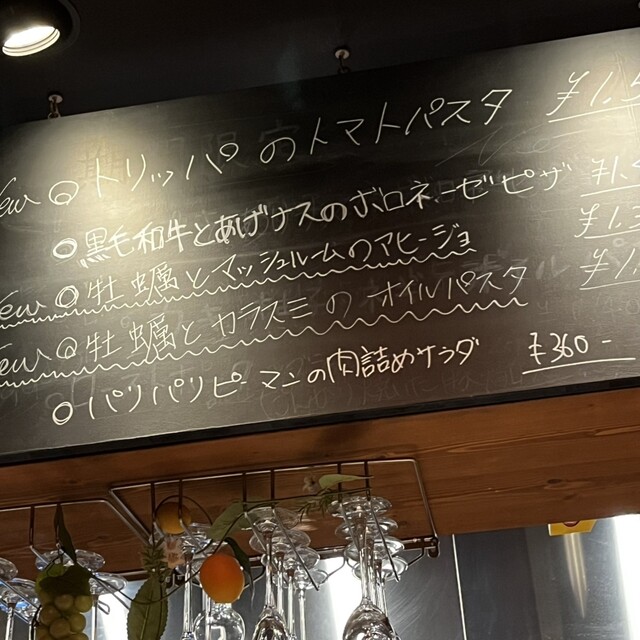 New トリッパのトマトパスタ ¥1.
黒毛和牛とあげナスのボロネーゼピザ ¥1.
New 牡蠣とマッシュルームのアヒージョ ¥1.
New 牡蠣とカラスミのオイルパスタ ¥1.
パリパリピーマンの肉詰めサラダ ¥360-